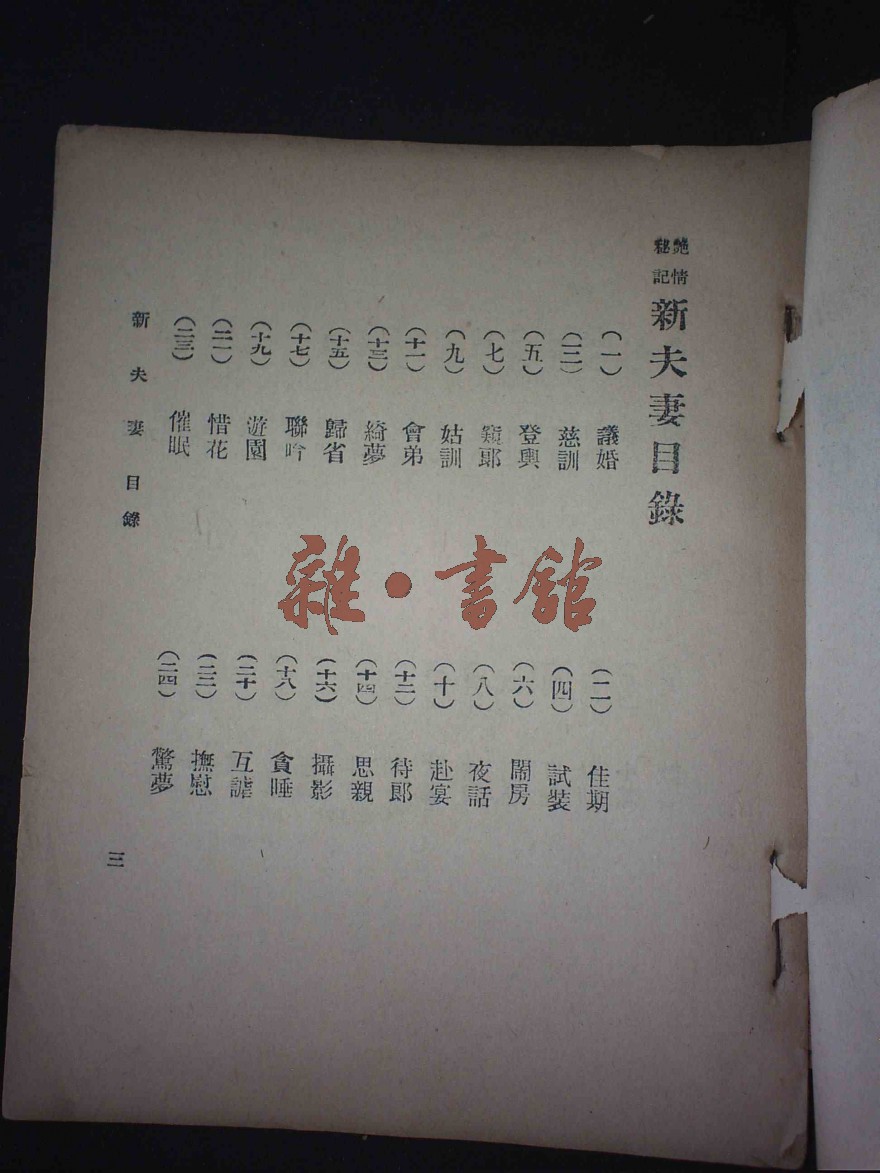 艷情秘記 新夫妻目錄
(一) 議婚 (二) 佳期
(三) 慈訓 (四) 試裝
(五) 登輿 (六) 鬧房
(七) 窺郎 (八) 夜話
(九) 姑訓 (十) 赴宴
(十一) 會弟 (十二) 待郎
(十三) 綺夢 (十四) 思親
(十五) 歸省 (十六) 攝影
(十七) 聯吟 (十八) 貪睡
(十九) 遊園 (二十) 互謔
(二一) 惜花 (二二) 撫慰
(二三) 催眠 (二四) 驚夢
新夫妻目錄 三
雜·書館